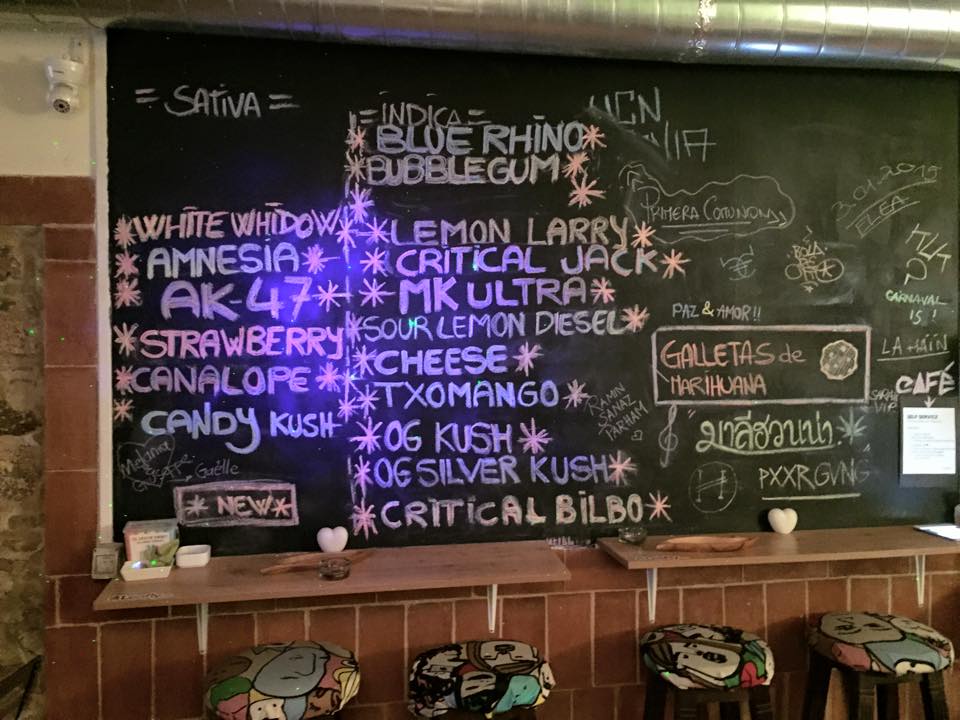 = SATIVA =
WHITE WHIDOW
AMNESIA
AK-47
STRAWBERRY
CANALOPE
CANDY KUSH
Gaëlle
* NEW *
= INDICA =
BLUE RHINO
BUBBLEGUM
LEMON LARRY
CRITICAL JACK
MK ULTRA
SOUR LEMON DIESEL
CHEESE
TXOMANGO
OG KUSH
OG SILVER KUSH
CRITICAL BILBO
PRIMERA COMUNION
3.01.2019
PAZ & AMOR!!
GALLETAS de
MARIHUANA
PXXRGVNG
CARNAVAL
IS!
CAFÉ
SELF SERVICE